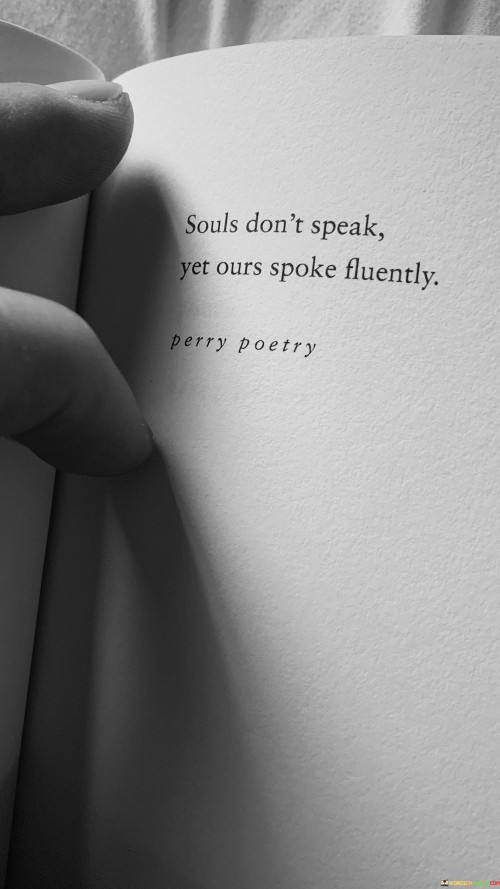 Souls don't speak,
yet ours spoke fluently.
perry poetry